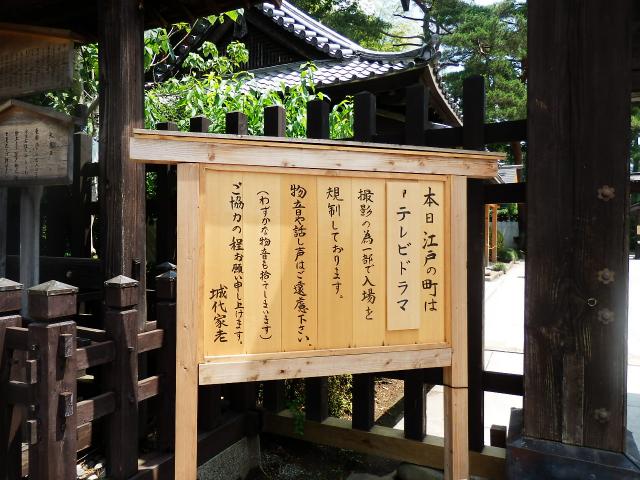 本日江戸の町は
『テレビドラマ
撮影の為一部で入場を
規制しております。
物音や話し声はご遠慮下さい。
(わずかな物音も拾てしまいます)
ご協力の程お願い申し上げます。
城代家老